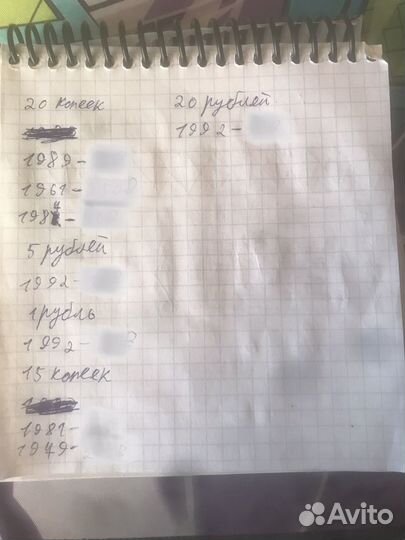 20 копеек
1989-
1961-
198 -
5 рублей
1992-
1 рубль
1992-
15 копеек
1981-
1979-
20 рублей
1992-
Avito